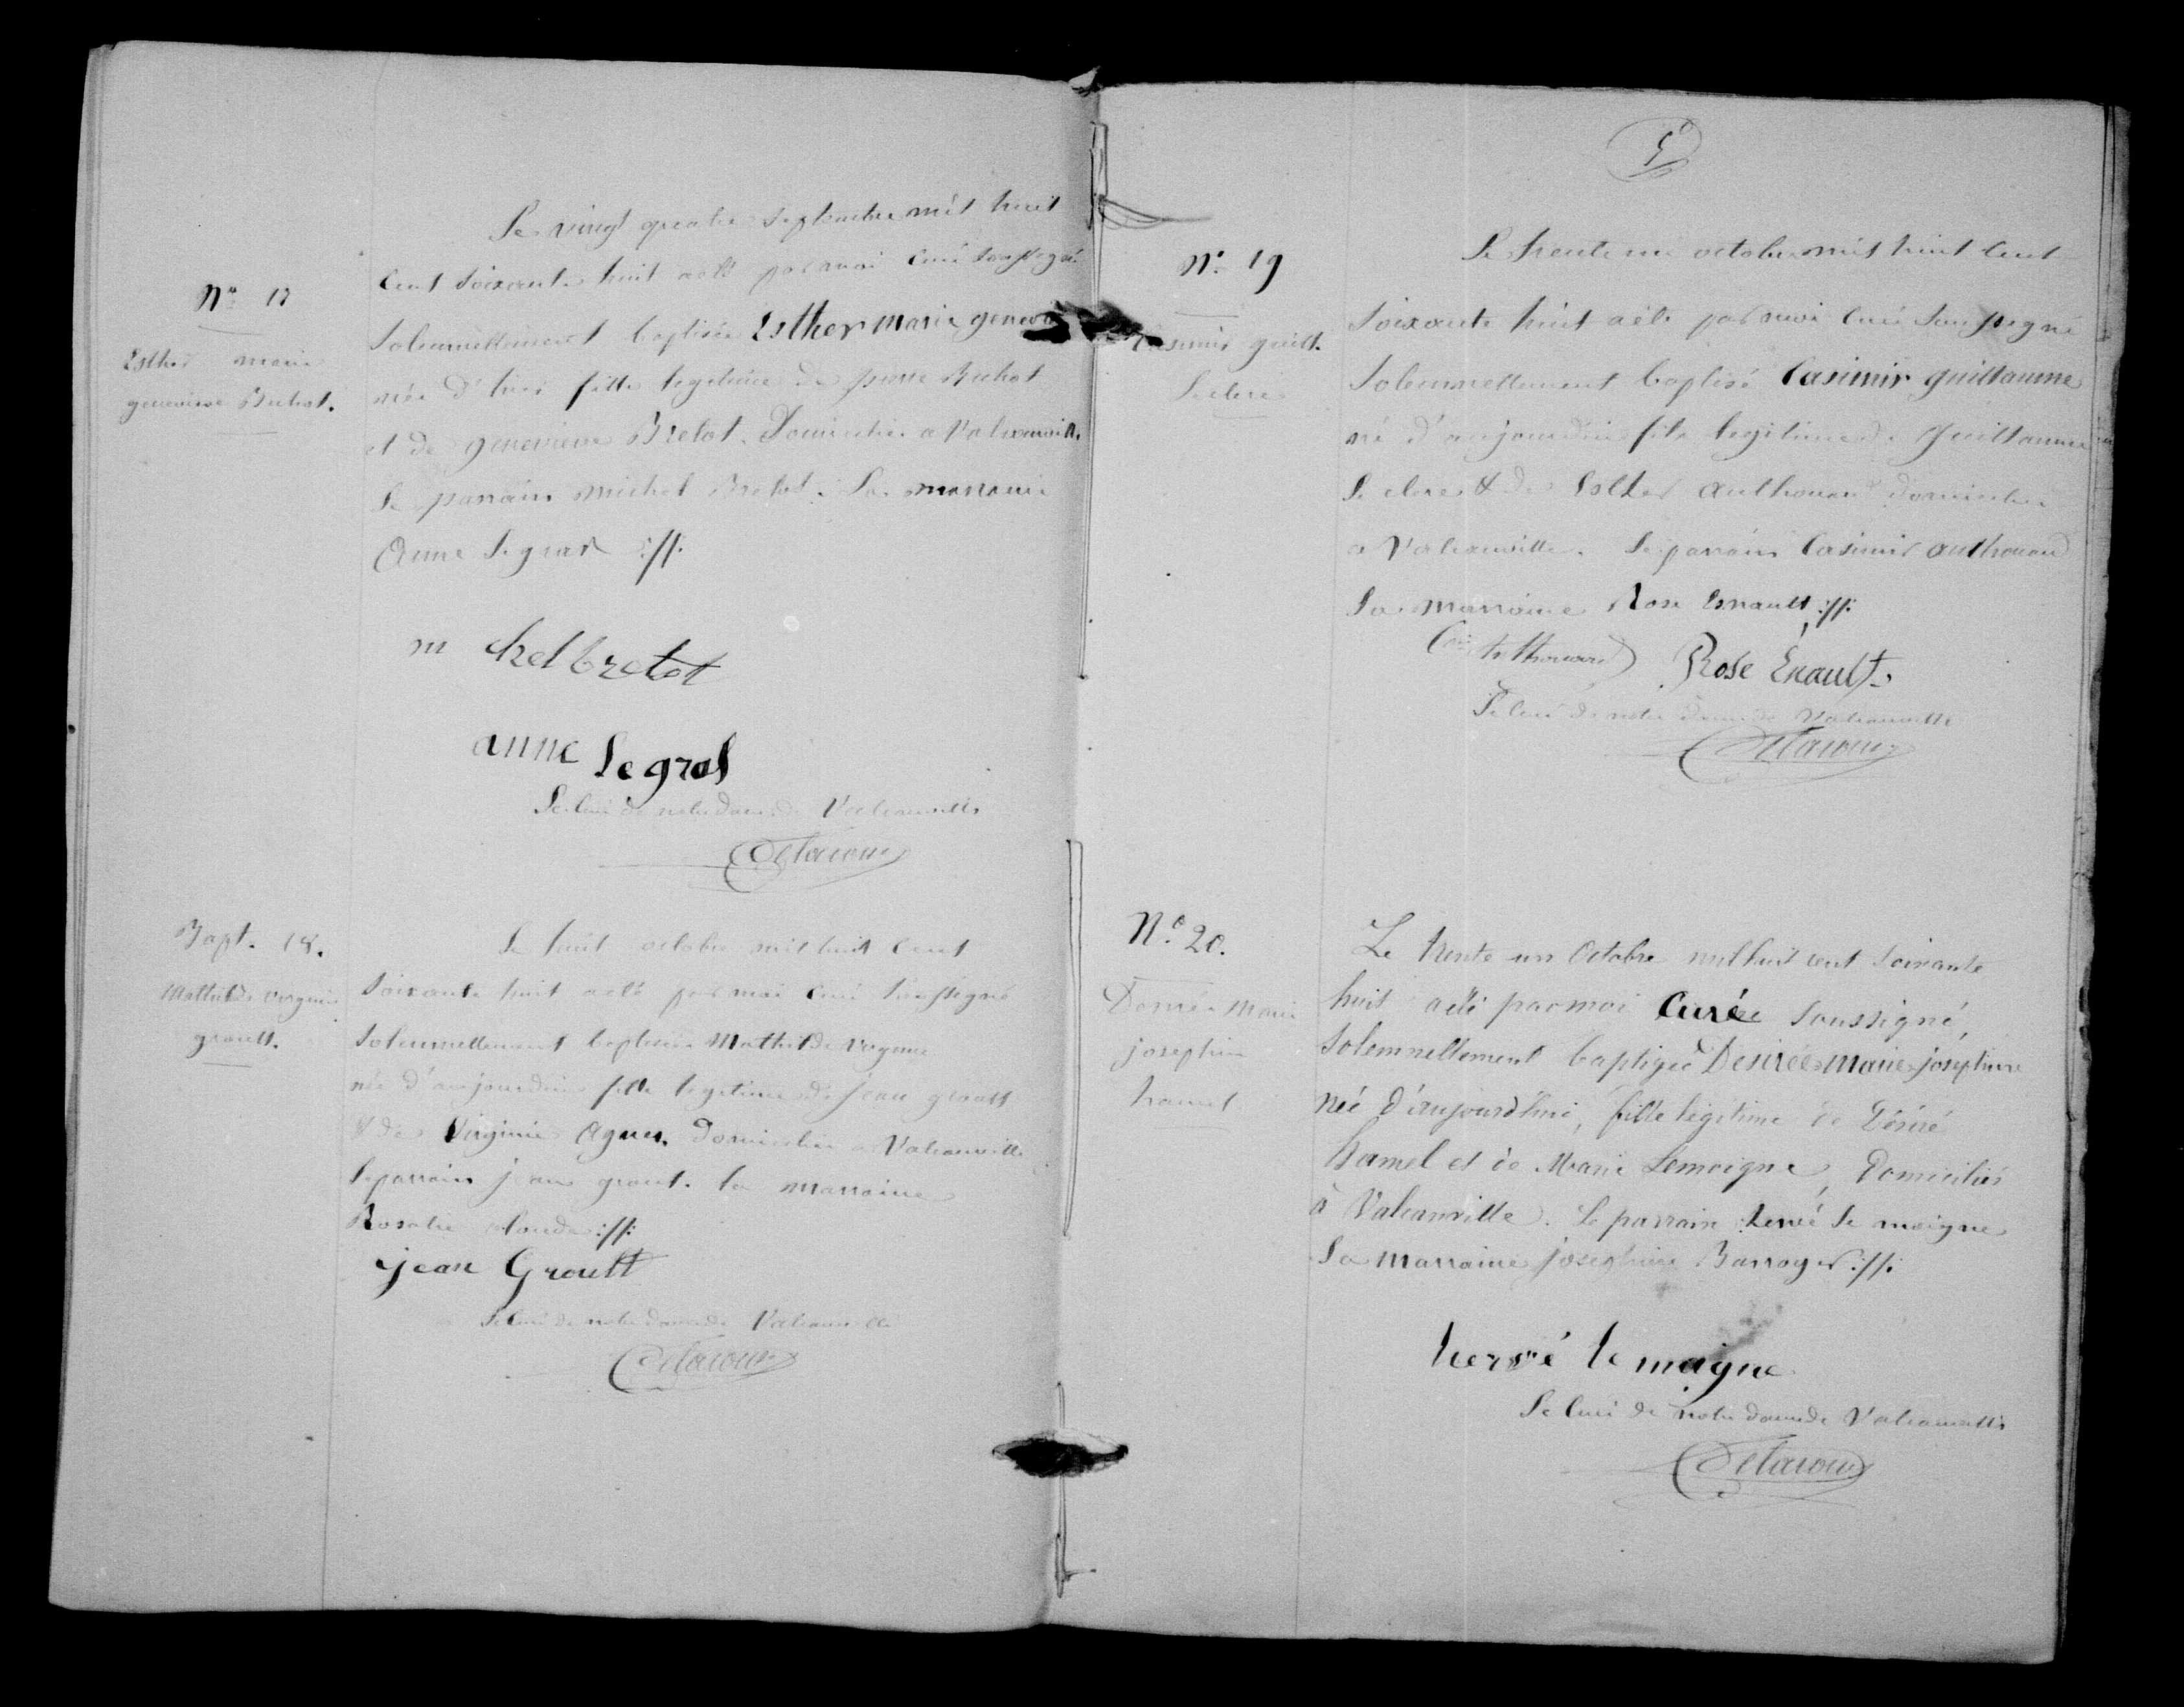 Le vingt quatre septembre mil huit
cent soixante huit a été par moi curé soussigné
N° 17
solennellement baptisée Esther marie genevi
Esther marie
genevieve Buhot.
née d'hier fille legitime de pierre Buhot
et de genevieve Bretot. Domiciliés a Valcanville
Le parrain michel Bretot. La marraine
Anne Legras :ss:
michel bretot
anne Legras
Le curé de notre dame de Valcanville
Delacour
Bapt. 18.
Mathilde virginie
groult.
Le huit octobre mil huit cent
soixante huit a été par moi curé soussigné
solennellement baptisée Mathilde virginie
née d'aujourdhui fille legitime de jean groult
& de Virginie Agnes. Domiciliés a Valcanville
Le parrain jean groult. la marraine
Rosalie :ss:
jean Groult
Le curé de notre dame de Valcanville
Delacour
5
N° 19
Casimir guill.
Leclerc
Le trente un octobre mil huit cent
soixante huit a été par moi curé soussigné
solennellement baptisé Casimir guillaume
né d'aujourdhui fils legitime de guillaume
Le clerc & de Esther authouard domiciliés
a Valcanville. Le parrain Casimir authouard
La marraine Rose Esnault :ss:
authouard Rose Énault
Le curé de notre dame de Valcanville
Delacour
N° 20.
Desirée Marie
josephine
hamel
Le trente un Octobre mil huit cent soixante
huit a été par moi Curé soussigné,
solemnellement baptisée Desirée marie josephine
née d'aujourd'hui, fille légitime de Désiré
hamel et de Marie Lemoigne, Domiciliés
à Valcanville. Le parrain hervé Le moigne
La marraine josephine Barroyer :ss:
hervé le moigne
Le curé de notre dame de Valcanville
Delacour